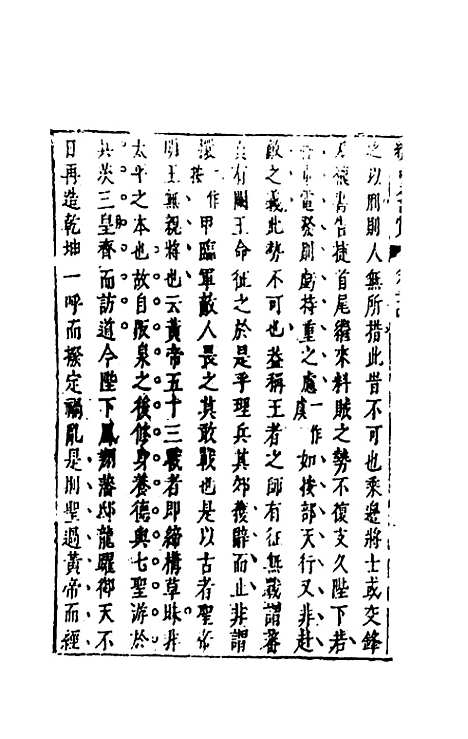 之以刑則人無所措此昔不可也乘邊將士或交鋒
告捷首尾繼來料賊之勢不復支久陛下若
電發則虧持重之慮一作虞如按部天行又非赴
敵之義此勢不可也蓋稱王者之師有征無戰謂蕃
有闕王命征之於是乎理兵其郊獲辭而止非謂
按一作甲臨軍敵人畏之莫敢戰也是以古者聖帝
明王無親將也夫黃帝五十三戰者即締構草昧非
太平之本也故自阪泉之後修身養德與七聖游於
具茨三皇齊而訪道今陛下鳳翔藩邸龍躍御天不
日再造乾坤一呼而撥定禍亂是則聖過黃帝而經